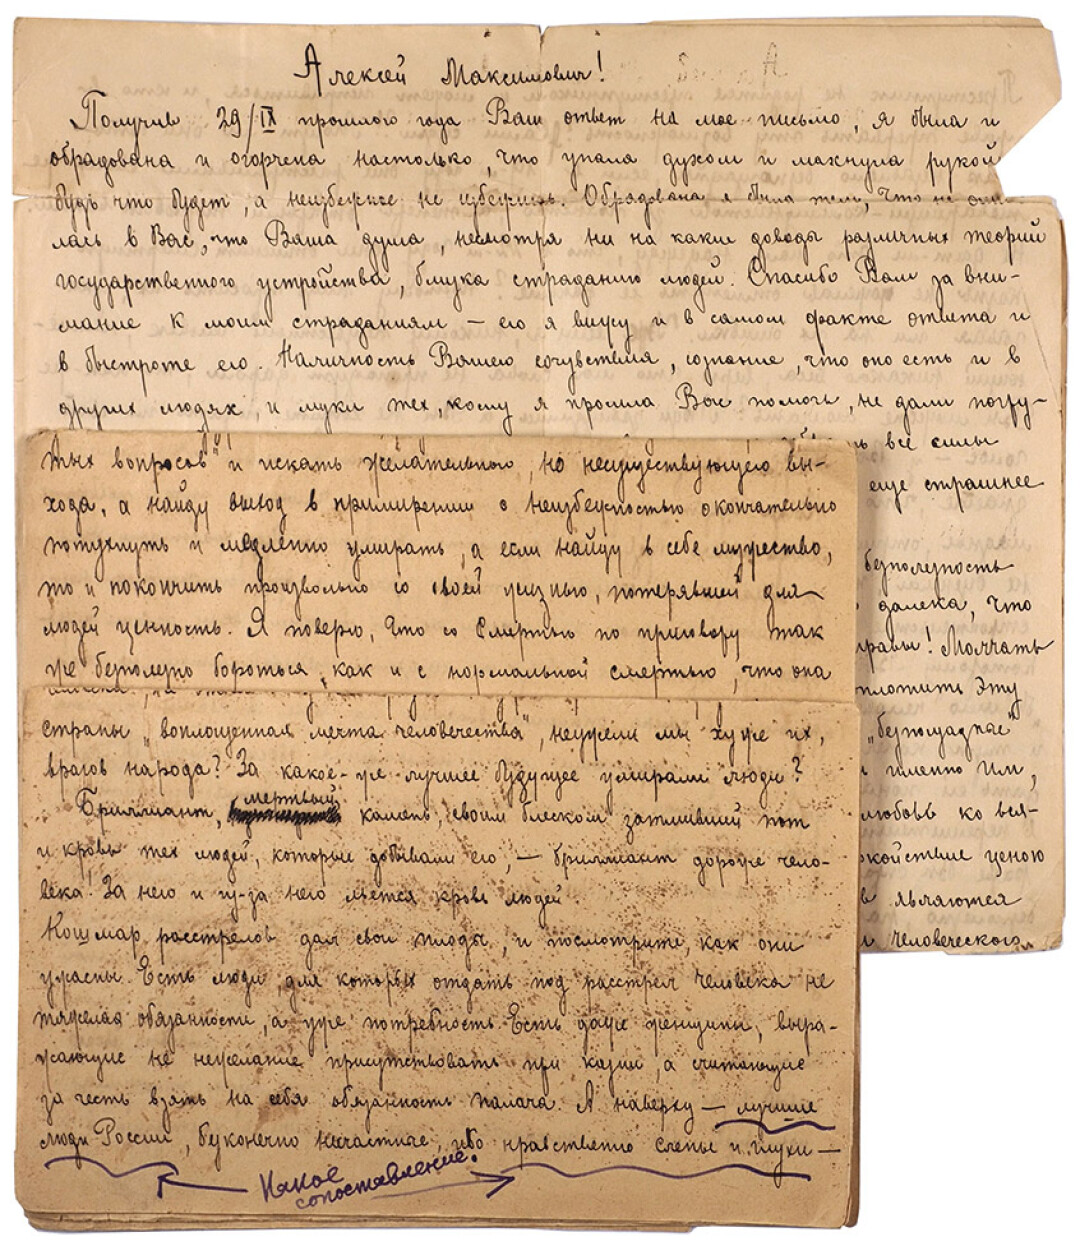 Алексей Максимович!
Получив 29/IX прошлого года Ваш ответ на мое письмо, я была и
обрадована и огорчена настолько, что упала духом и махнула рукой
будь что будет, а неизбежное не избежишь. Обрадована я была тем, что не оши-
лась в Вас, что Ваша душа, несмотря ни на какие доводы различных теорий
государственного устройства, близка страданию людей. Спасибо Вам за вни-
мание к моим страданиям — его я вижу и в самом факте ответа и
в быстроте его. Наличность Вашего сочувствия, сознание, что оно есть и в
других людях, и муки тех, кому я просила Вас помочь, не дали погру-
все силы
еще страшнее
бесполезность
далека, что
правы! Молчать
эту
"беспощадная"
именно им,
любовь ко вся-
ценою
являются
человеческого
тых вопросов" и искать желательного, но несуществующего вы-
хода, а найду выход в примирении с неизбежностью окончательно
потухнуть и медленно умирать, а если найду в себе мужество,
то и покончить произвольно со своей жизнью, потерявшей для
людей ценность. Я поверю, что со смертью по приговору так
же бесполезно бороться, как и с нормальной смертью, что она
страны „воплощенная мечта человечества", неужели мы хуже их,
врагов народа? За какое-же лучшее будущее умирали люди?
Бриллиант, мертвый камень, своим блеском затмивший пот
и кровь тех людей, которые добывали его, — бриллиант дороже чело-
века! За него и из-за него льется кровь людей.
Кошмар расстрелов дал свои плоды, и посмотрите, как они
ужасны. Есть люди, для которых отдать под расстрел человека не
тяжелая обязанность, а уже потребность. Есть даже женщины, выра-
жающие не нежелание присутствовать при казни, а считающие
за честь взять на себя обязанность палача. А наверху — лучшие
люди России, бесконечно несчастные, ибо нравственно слепы и глухи —
Какое
сопоставление.